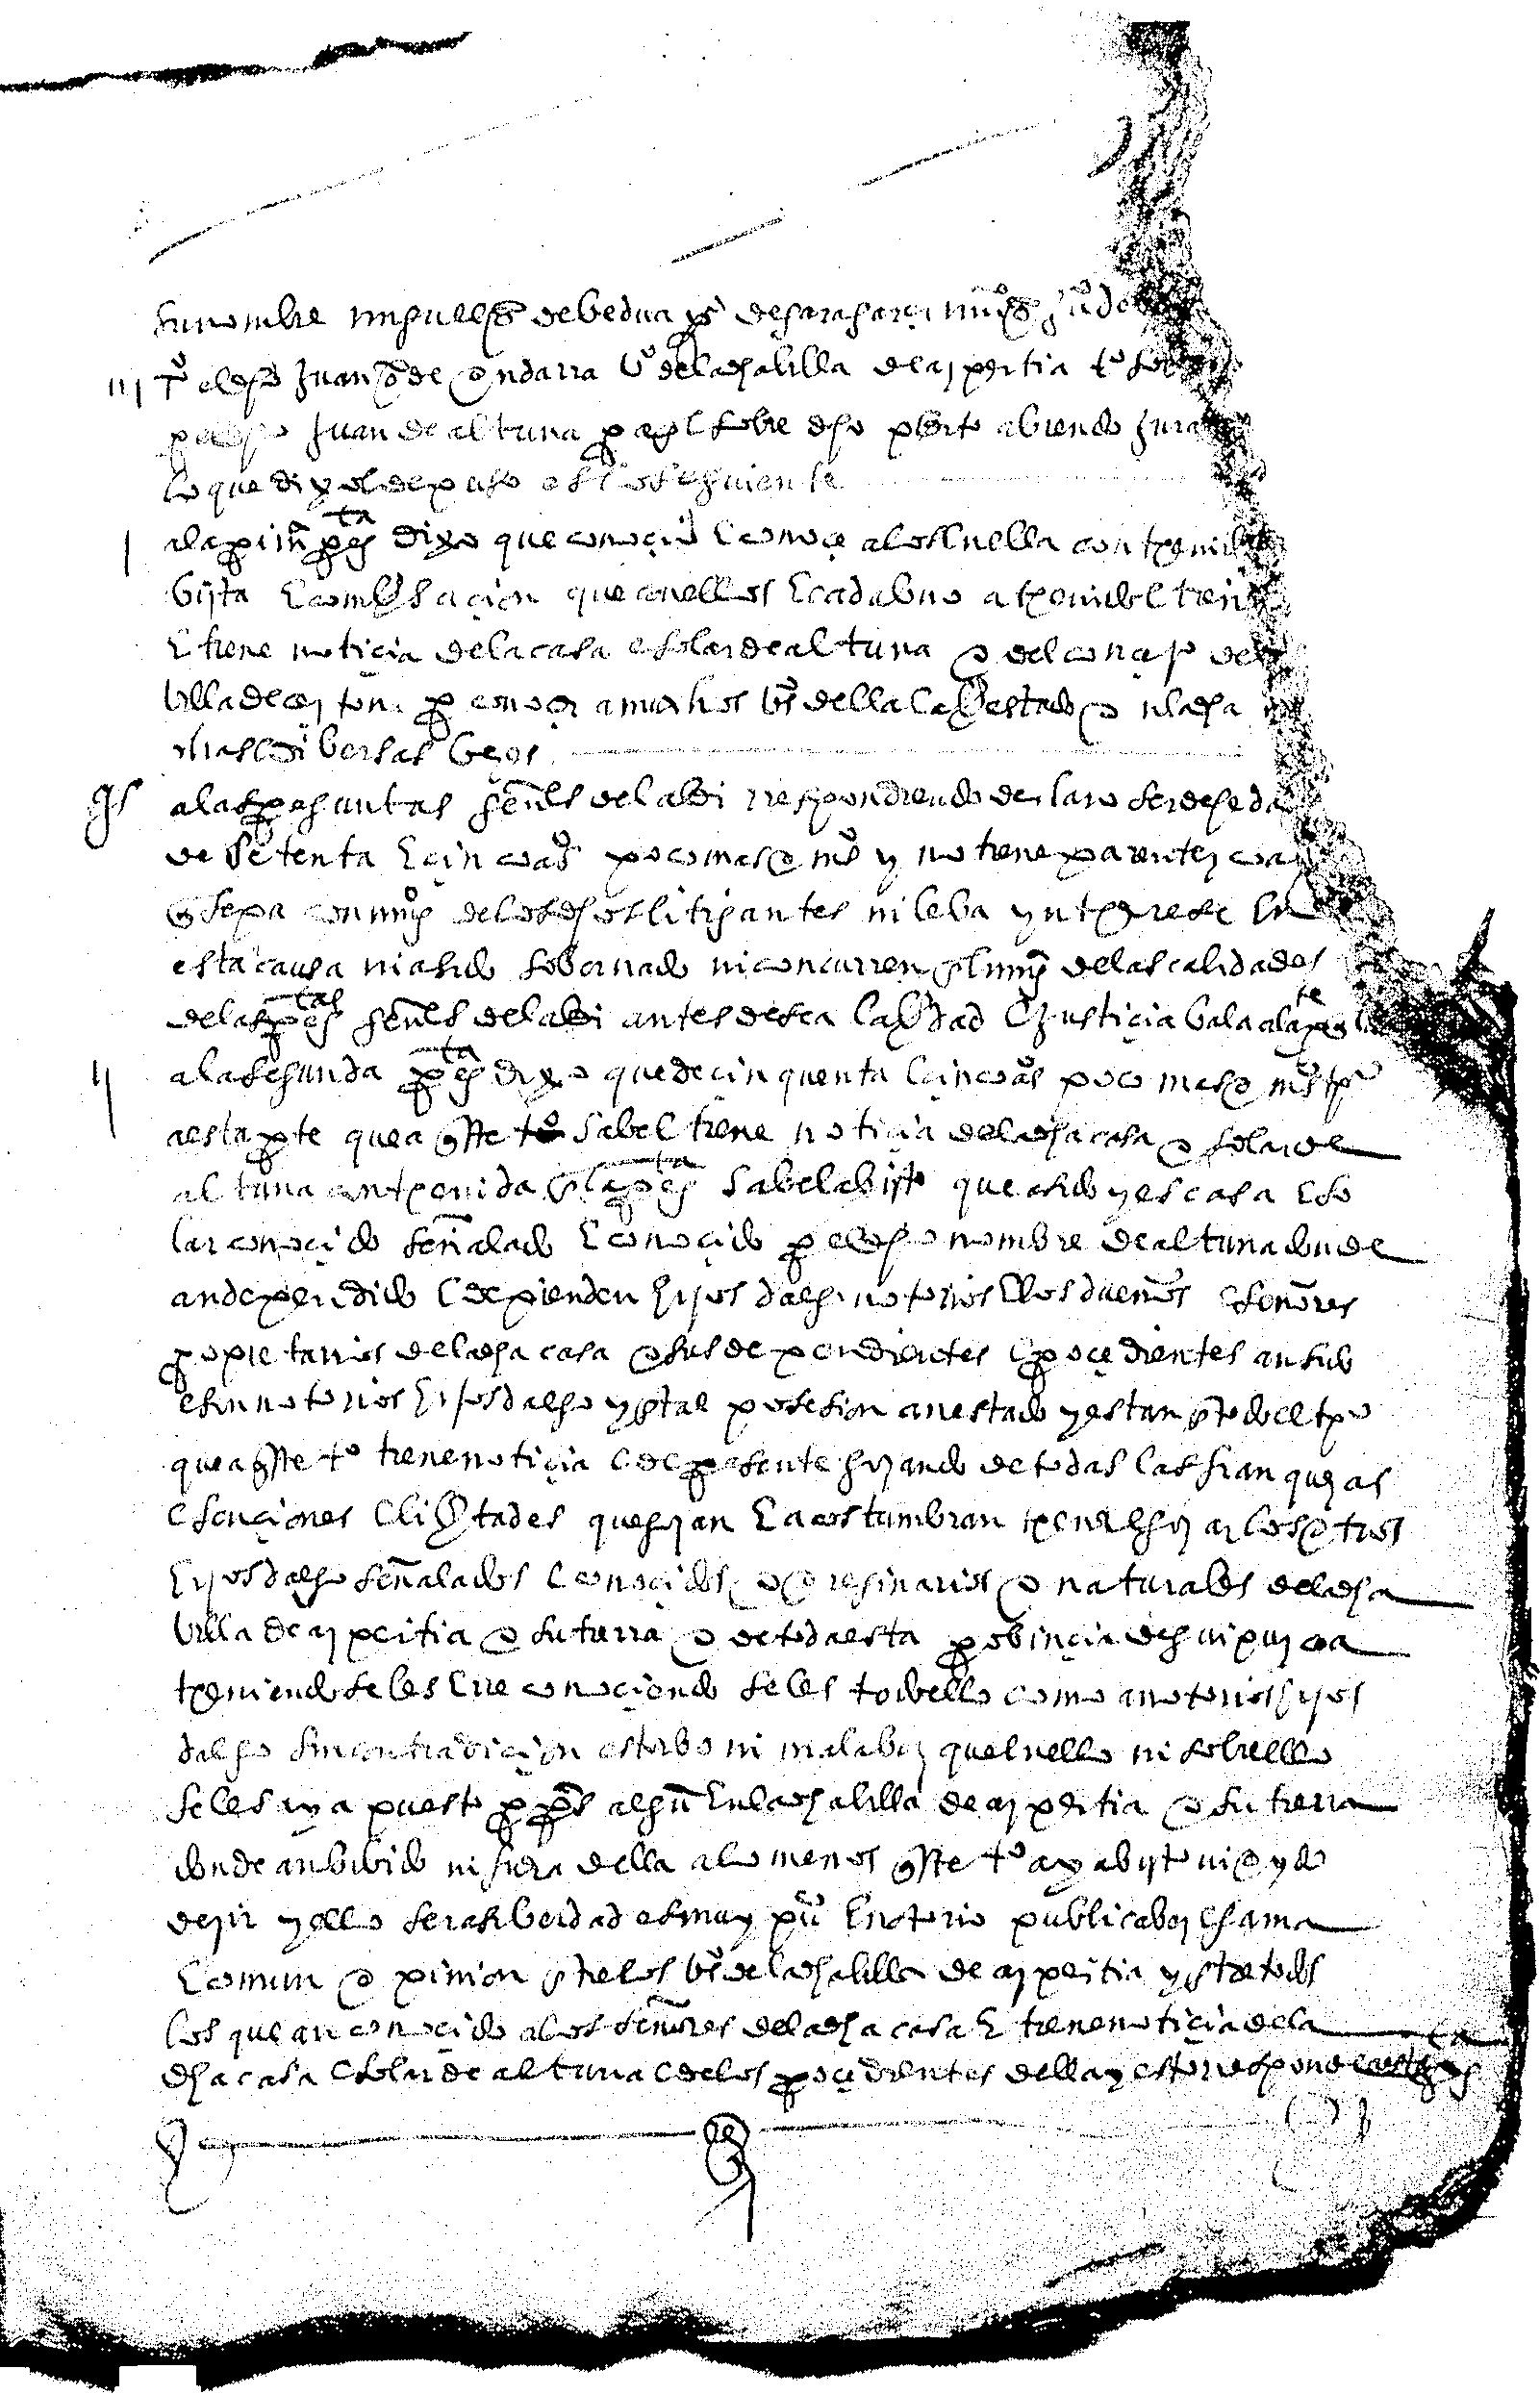 su nombre miguel ps de bedua
iii To el dho Juan de ondarra vo de la dha villa de azpeitia to
por el dho Juan de altuna para el sobre dho pleito abiendo jura
lo que dixo e depuso es lo seguiente
I a la prima pregta dixo que conoçio e conoçe a los en ella contenidos
bista e combersaçion que con ellos e cada buno a tenido e tiene
e tiene notiçia de la casa e solar de altuna o del conçejo de
billa de por conoçer a muchos vos della e aber estado en la dha
dibersas bezes
gs a las preguntas genles de la lei rrespondiendo declaro ser de hedad
de setenta e çinco aos poco mas o mos y no tiene parentezco
que sepa con ningo de los dhos litigantes ni leba ynterese en
esta causa ni a sido sobornado ni concurren en el ningo de las calidades
de las pregtas genles de la lei antes desea la berdad e justiçia bala a la parte
ii a la segunda pregta dixo que de çinquenta e çinco aos poco mas o mos tpo
a esta parte que a que este to sabe e tiene notiçia de la dha casa o solar de
altuna contenida en la pregta sabe e a bisto que a sido y es casa e so
lar conoçido señalado e conoçido por el dho nombre de altuna donde
an dependido e depienden hijos dalgo notorios e los dueños e señores
propietarios de la dha casa o sus dependientes e proçedientes an sido
e son notorios hijos dalgo y en tal posesion an estado y estan en todo el tpo
que a que este to tiene notiçia e de presente gozando de todas las franquezas
esençiones e libertades que gozan e acostumbran tener e gozar los otros
hijos dalgo señalados e conoçidos o oreginarios o naturales de la dha
billa de azpeitia o su tierra o de toda esta probinçia de guipuzcoa
teniendoseles e rreconoçiendoseles todo ello como a notorios hijos
dalgo sin contradiçion estorbo ni mala boz que en ello ni sobre ello
se les aya puesto por pers algun en la dha villa de azpeitia o su tierra
donde an bibido ni fuera della a lo menos que este to aya bisto ni oydo
dezir y ello ser asi berdad es muy puco e notorio publica boz e fama
e comun opinion entre los vos de la dha villa de azpeitia y entre todos
los que an conoçido a los señores de la dha casa e tiene notiçia de la
dha casa e solar de altuna e de los proçedientes della y esto rresponde a esta pregta